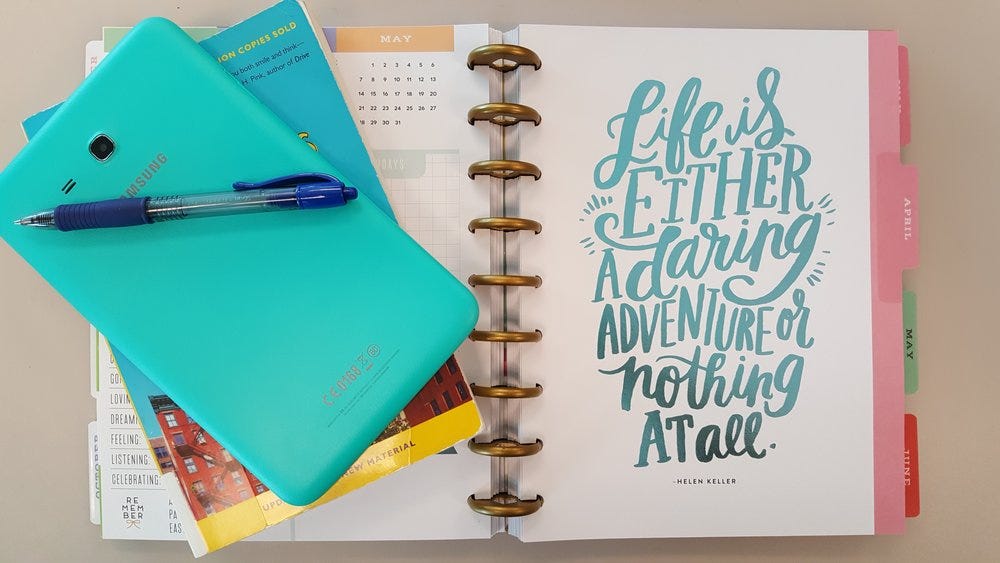 ION COPIES SOLD
you both smile and think—
H. Pink, author of Drive
MAY
1 2 3 4 5 6
7 8 9 10 11 12 13
14 15 16 17 18 19 20
21 22 23 24 25 26 27
28 29 30 31
DAYS
MSUNG
CE0168
NEW MATERIAL
UPD
LOVIN
DREAMI
FEELING:
LISTENING:
CELEBRATING:
RE
MEM
BER
PA
EAS
Life is
EITHER
A daring
ADVENTURE or
nothing
AT all.
-HELEN KELLER
APRIL
MAY
JUNE